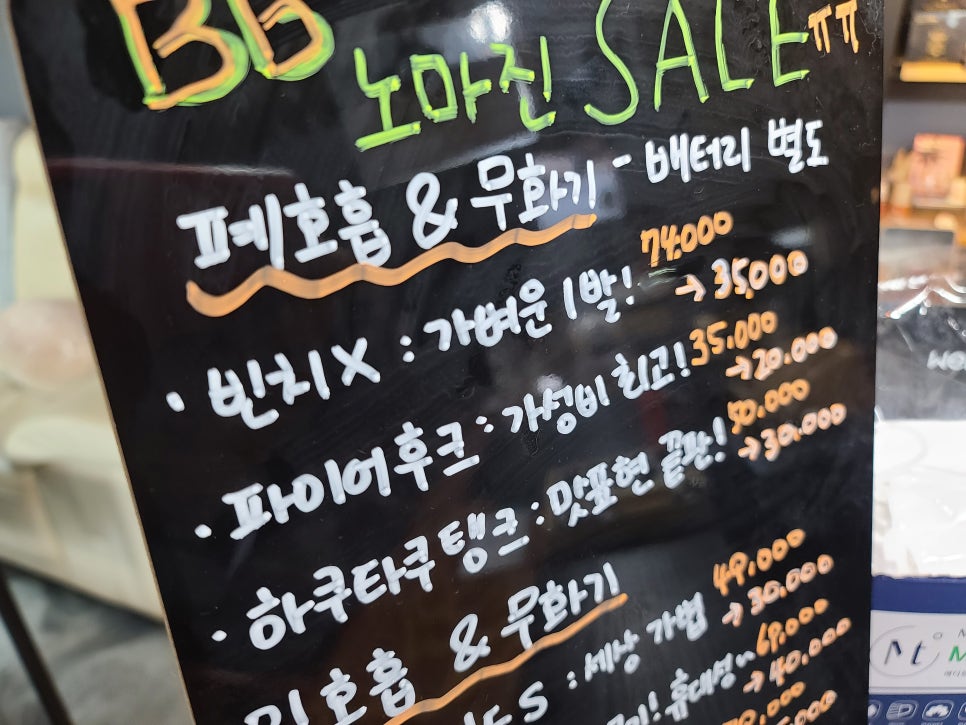 BB
노마진 SALE ㅠㅠ
폐호흡 & 무화기 - 배터리 별도
· 빈치X : 가벼운 1발! 74.000 → 35,000
· 파이어후크 : 가성비 최고! 35.000 → 20.000
· 하쿠타쿠 탱크 : 맛표현 끝판! 50.000 → 30.000
입호흡 & 무화기
S : 세상 가볍 49.000 → 30.000
! 휴대성~ 69.000 → 40.000